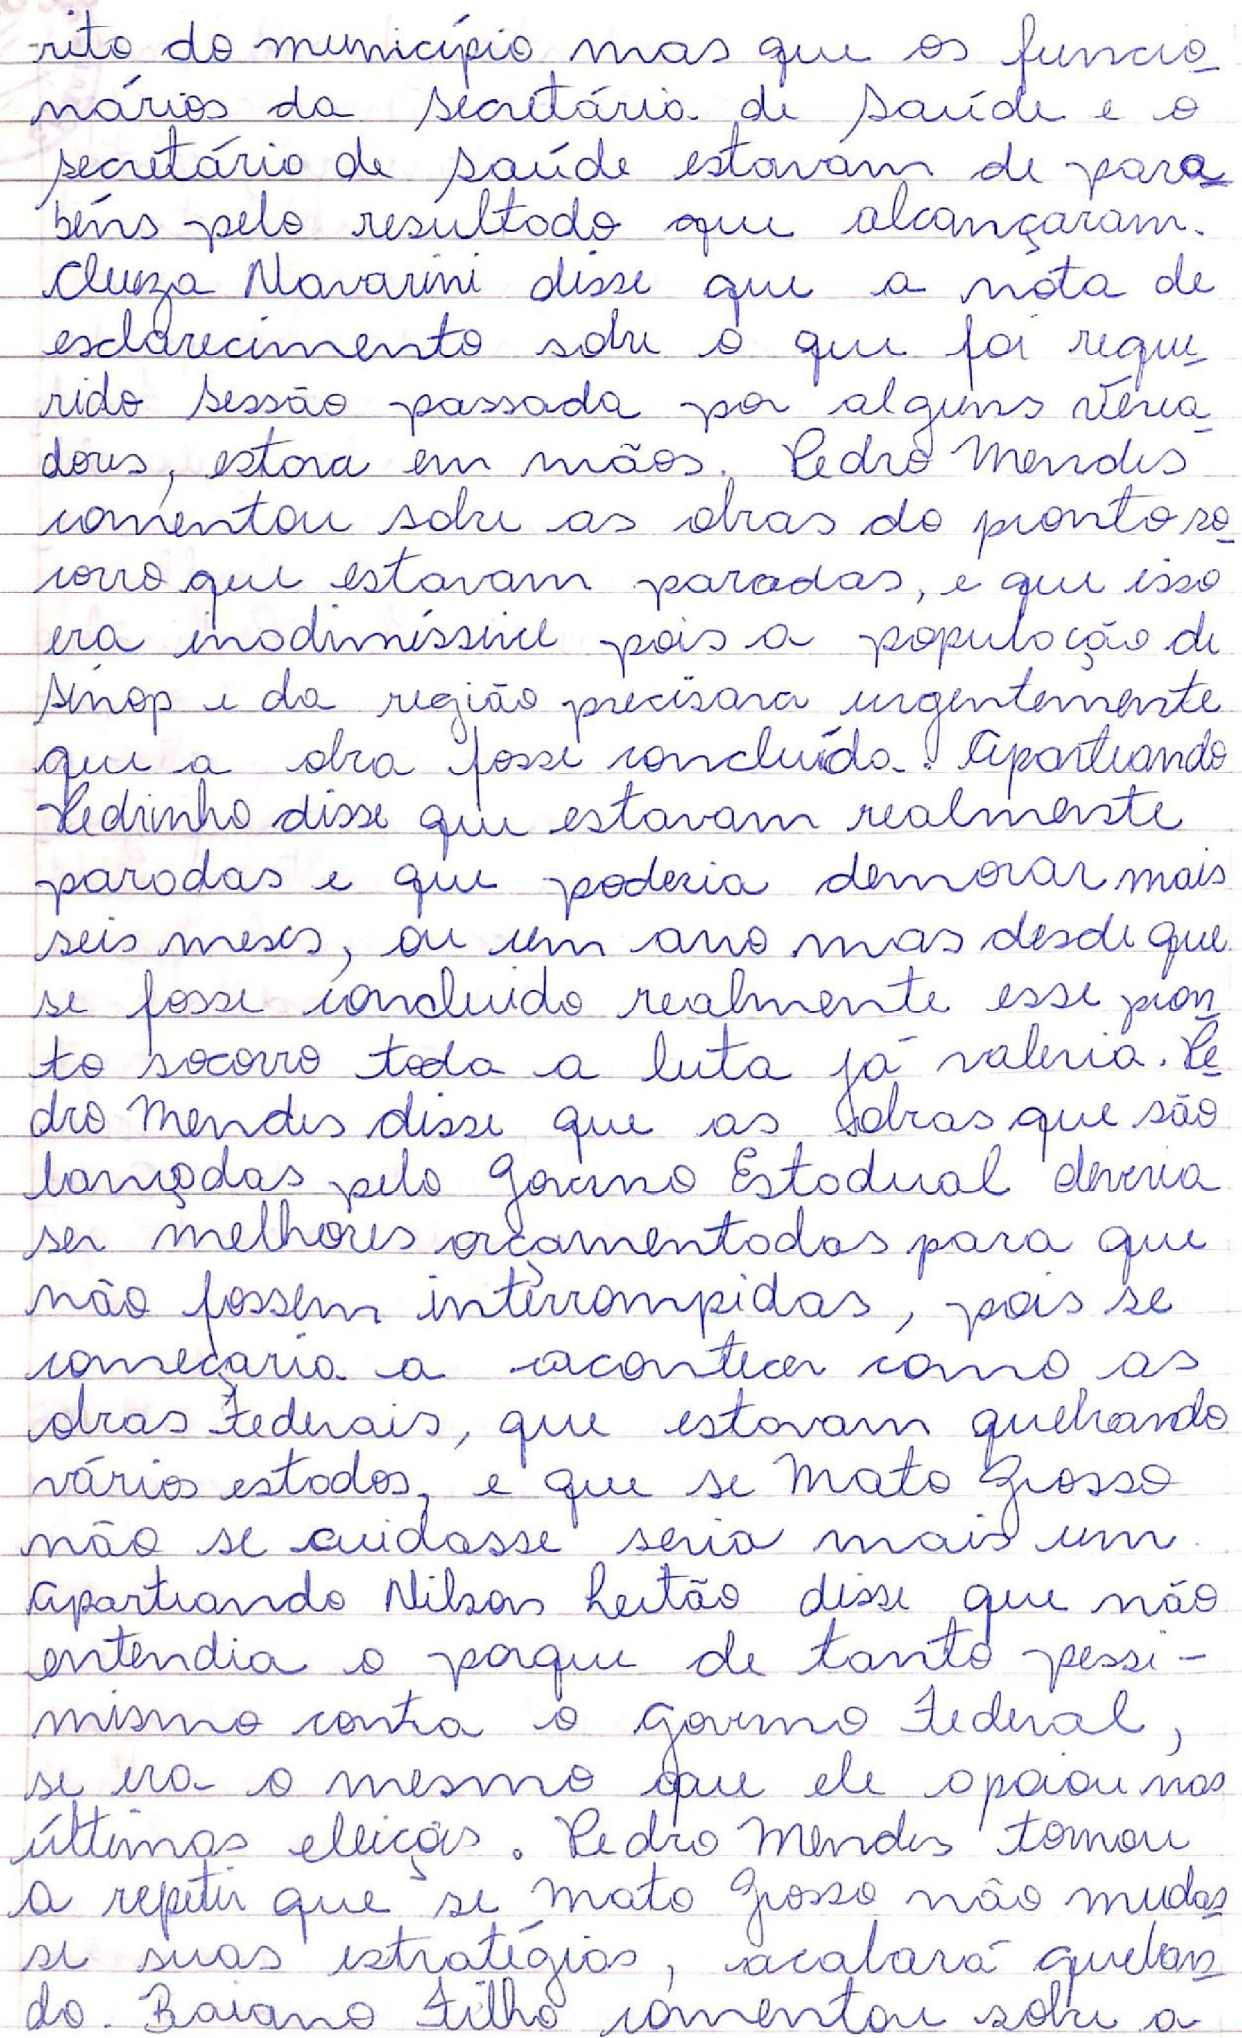 rito do município mas que os funcio
nários da secretário de saúde e o
secretário de saúde estavam de para
béns pelo resultado que alcançaram.
Cleuza Navarini disse que a nota de
esclarecimento sobre o que foi reque
rido sessão passada por alguns verea
dores, estava em mãos. Pedro Mendes
comentou sobre as obras do pronto so
corro que estavam paradas, e que isso
era inadimíssivel pois a população de
Sinop e da região precisava urgentemente
que a obra fosse concluída. Aparteando
Pedrinho disse que estavam realmente
paradas e que poderia demorar mais
seis meses, ou um ano mas desde que
se fosse concluido realmente esse pron
to socorro toda a luta já valeria. Pe
dro Mendes disse que as obras que são
lançadas pelo Governo Estadual deveria
ser melhores orçamentadas para que
não fossem interrompidas, pois se
começaria a acontecer como as
obras Federais, que estavam quebrando
vários estados, e que se Mato Grosso
não se cuidasse seria mais um.
Aparteando Nilson Leitão disse que não
entendia o porque de tanto pessi-
mismo contra o Governo Federal,
se era o mesmo que ele apoiou nas
últimas eleições. Pedro Mendes tornou
a repetir que se Mato Grosso não mudas
se suas estratégias, acabará quebran
do. Baiano Filho comentou sobre a